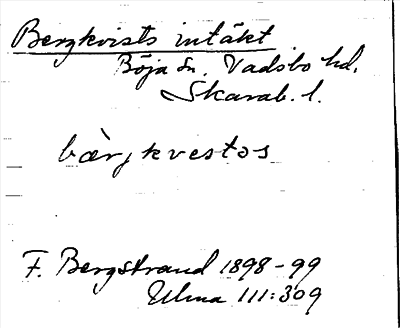 Bergkvists intäkt
Böja sn. Vadsbo hd.
Skarab. l.
bæ̀rjkvestos
F. Bergstrand 1898-99
Ulma 111:309